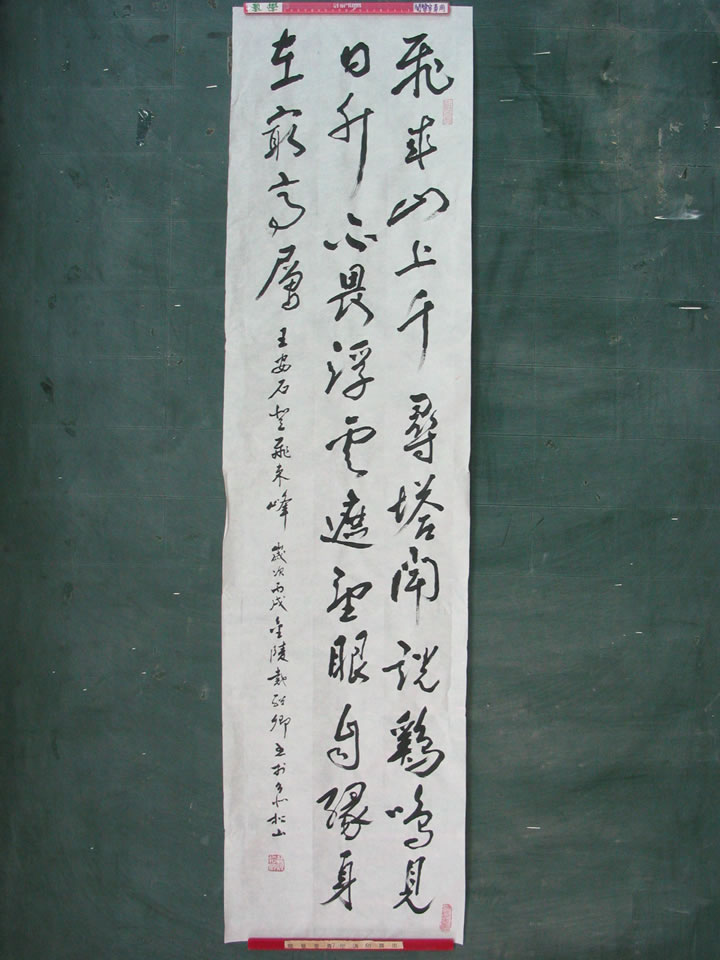 飛來山上千尋塔聞說鷄鳴見
日升不畏浮云遮望眼自緣身
在最高層 王安石登飛來峰 歲次丙戌金陵戴卿書於台北松山